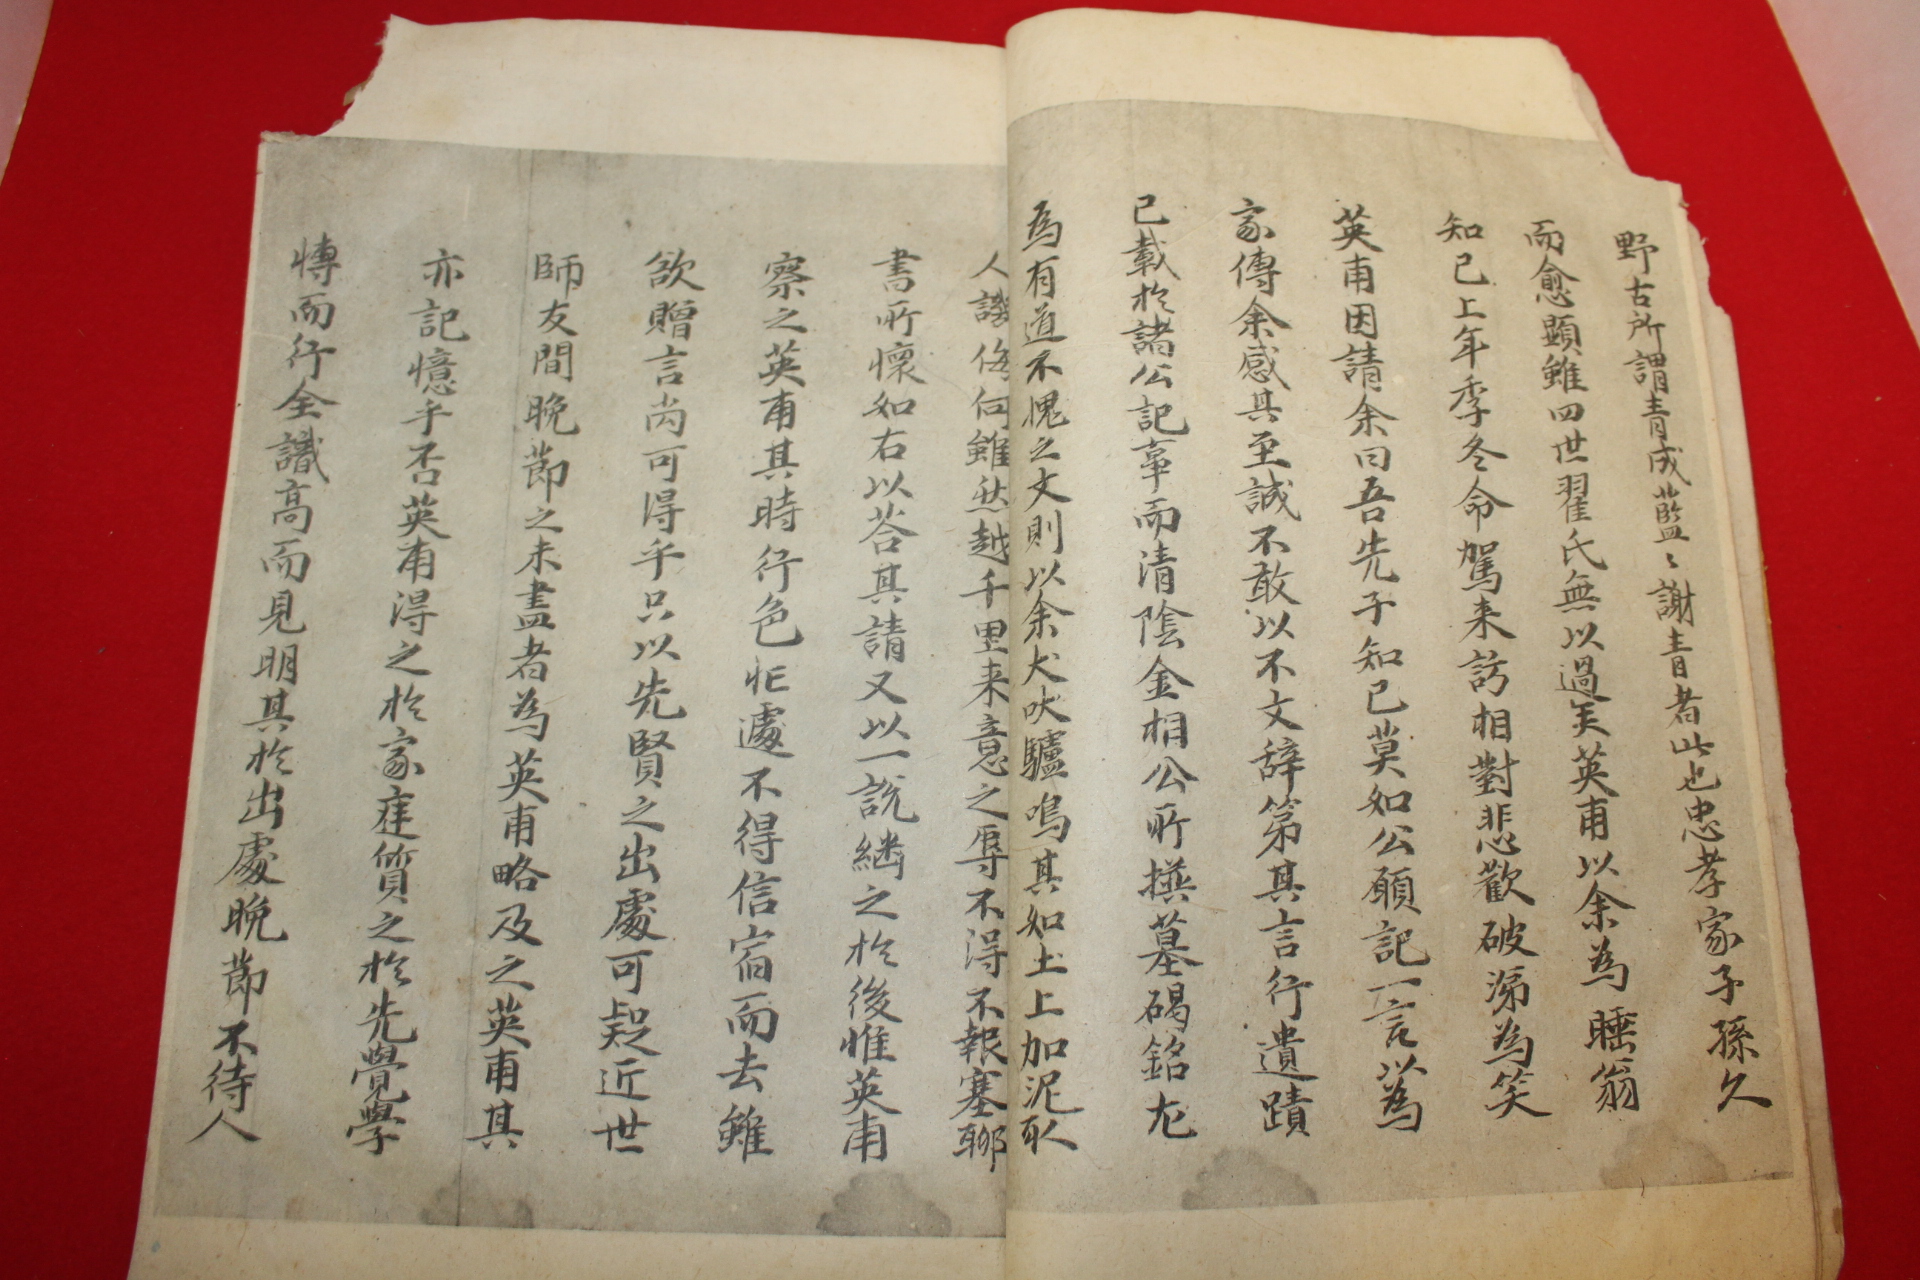 野古所謂青成藍〻謝青者此也忠孝家子孫久
而愈顯雖四世翟氏無以過矣英甫以余為睡翁
知已上年季冬命駕来訪相對悲歡破涕為笑
英甫因請余曰吾先子知已莫如公願記一言以為
家傳余感其至誠不敢以不文辞第其言行遺蹟
已載於諸公記事而清陰金相公所撰墓碣銘尤
為有道不愧之文則以余犬吠驢鳴其如土上加泥取
人譏侮何雖然越千里来意之辱不得不報塞聊
書所懷如右以荅其請又以一說繼之於後惟英甫
察之英甫其時行色忙遽不得信宿而去雖
欲贈言尚可得乎只以先賢之出處可疑近世
師友間晩節之未盡者為英甫略及之英甫其
亦記憶乎否英甫得之於家庭質之於先覺學
慱而行全識高而見明其於出處晩節不待人